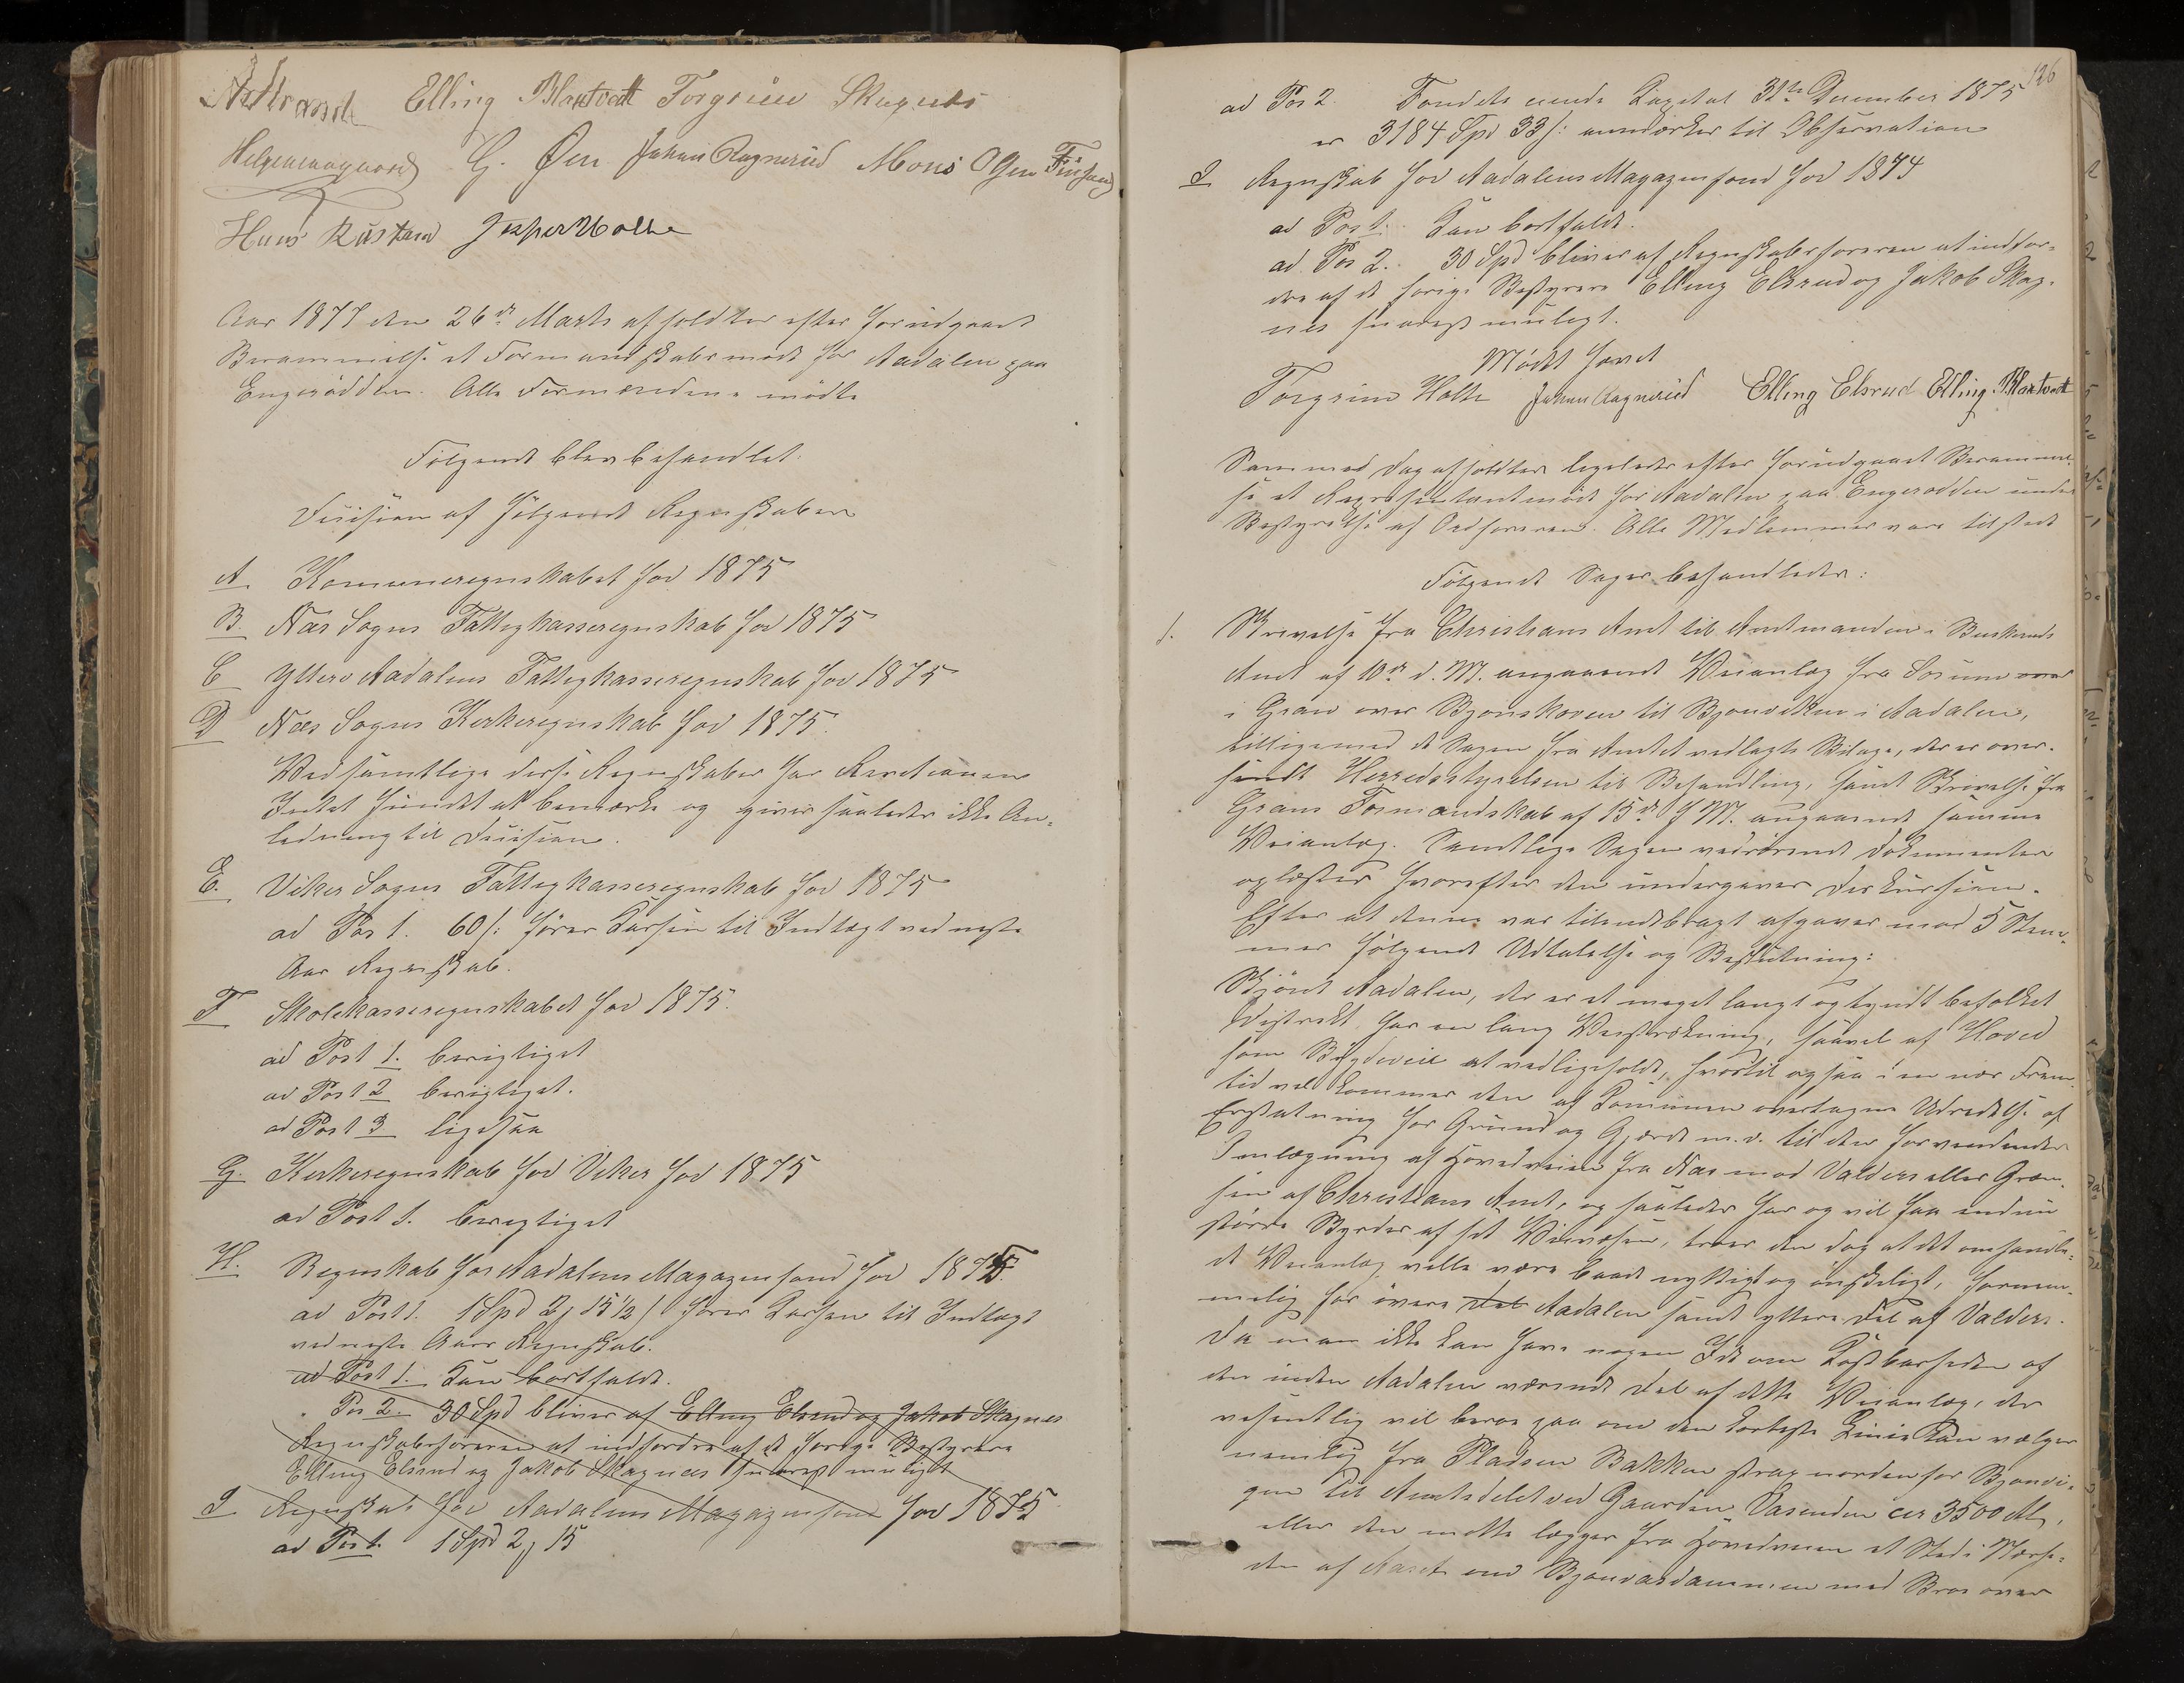 Elling Blaktvedt Torgrim Skagnes
G. Øen Johan Ragnerud Mons Olsen
Hans Rustand Jesper Molke
Aar 1877 den 26de Marts afholdtes efter forudgaaet
Berammelse et Formandskabsmøde for Aadalen paa
Engerodden. Alle Formændene mødte
Følgende blev behandlet:
Decision af følgende Regnskaber
A Komuneregnskabet for 1875
B. Næs Sogns Fattigkasseregnskab for 1875
C Yttere Aadalens Fattigkasseregnskab for 1875
D Næs Sogns Kirkeregnskab for 1875.
Ved samtlige disse Regnskaber har Revisionen
Intet fundet at bemærke og giver saaledes ikke An-
ledning til Decision.
E. Viker Sogns Fattigkasseregnskab for 1875
ad Pos 1. 60 s: fører Kassen til Indtægt ved neste
Aars Regnskab.
F Skolekasseregnskabet for 1875.
ad Post 1. berigtiget
ad Post 2 berigtiget.
ad Post 3 ligesaa
G. Kirkeregnskab for Viker for 1875
ad Post 1. berigtiget
H. Regnskab for Aadalens Magazinfond for 1875.
ad Post 1. 1 Spd 2 15 1/2 s fører Kassen til Indtægt
ved neste Aars Regnskab.
ad Post 1. Kan bortfalde.
Pos 2. 30 Spd bliver af Elling Elsrud og Jakob Skagnes
Regnskabsføreren at indfordre af de forrige Bestyrere
Elling Elsrud og Jakob Skagnes snarest muligt
I Regnskab for Aadalens Magazinfond for 1875
ad Pos 1. 1 Spd 2 15
126
ad Pos 2. Fondets Kapital 31te December 1875
er 3184 Spd 33 s: anmærkes til Observation
I Regnskab for Aadalens Magazinfond for 1874
ad Post 1. Kan bortfalde.
ad Pos 2. 30 Spd bliver af Regnskabsføreren at indfor-
dre af de forrige Bestyrere Elling Elsrud og Jakob Skag-
nes snarest muligt.
Mødet hævet
Torgrim Holte Johan Ragnerud Elling Elsrud Elling Blaktvedt
Sammed Dag afholdtes ligeledes efter forudgaaet Berammel-
se et Repræsentantmøde for Aadalen paa Engerodden under
Bestyrelse af Ordføreren. Alle Medlemmer vare tilstede
Følgende Sager behandledes:
1. Skrivelse fra Christians Amt til Amtmanden i Buskeruds
Amt af 10de d. M. angaaende Veianlæg fra Sørum over
i Gran over Bjoneskoven til Bjonviken i Aadalen,
tilligemed de Sagen fra Amtet vedlagte Bilage, der er over-
sendt Herredsstyrelsen til Behandling, samt Skrivelse fra
Grans Formandskab af 15de f M. angaaende samme
Veianlæg. Samtlige Sagen vedrørende Dokumenter
oplæstes hvorefter den undergaves Diskussion.
Efter at denne var tilendebragt afgaves mod 5 Stem-
mer følgende Udtalelse og Beslutning:
Skjønt Aadalen, der er et meget langt og tyndt befolket
Distrikt har en lang Veistrækning, saavel af Hoved
som Bygdeveie at vedligeholde, hvortil ogsaa i en nær Frem-
tid vil kommer den af Komunen overtagne Udredelse af
Erstatning for Grund og Gjærde m. v. til den forventende
Omlægning af Hovedveien fra Næs mod Valders eller Græn-
sen af Christians Amt, og saaledes har og vil faa endnu
større Byrder af sit Veivæsen, troer den dog at det omhandle-
de Veianlæg ville være baade nyttigt og ønskeligt, fornem-
melig for øvere Del Aadalen samt yttere Del af Valders.
Da man ikke kan have nogen Ide om Kostbarheden af
den inden Aadalen værende Del af dette Veianlæg, der
vesentlig vil beroe paa om den korteste Linie kan vælges
nemlig fra Pladsen Bakken strax nordenfor Bjonvi-
gen til Amtsdelet ved Gaarden Vasenden ca 3500 Al,
eller den maatte lægges fra Hovedveien et Sted i Nærhe-
den af end Bjonaasdammen med Bro over